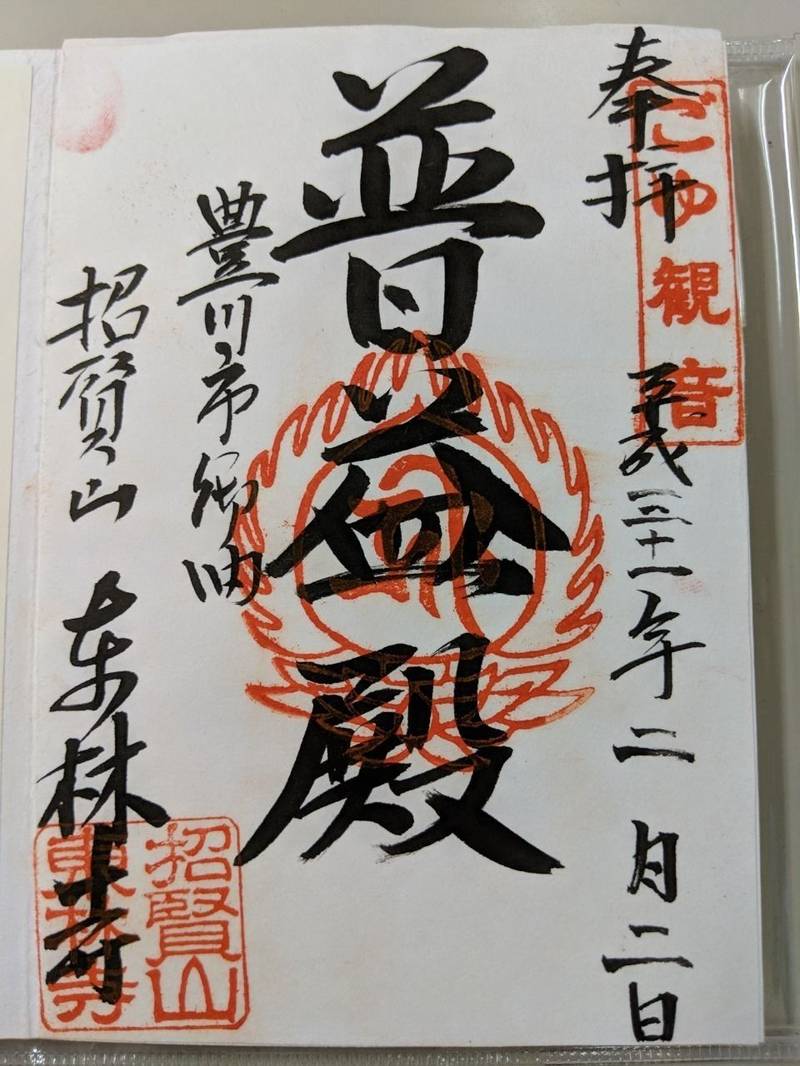 奉拝
平成三十一年二月二日
ごゆ観音
普益殿
豊川市御油
招賢山 東林寺
招賢山
東林寺